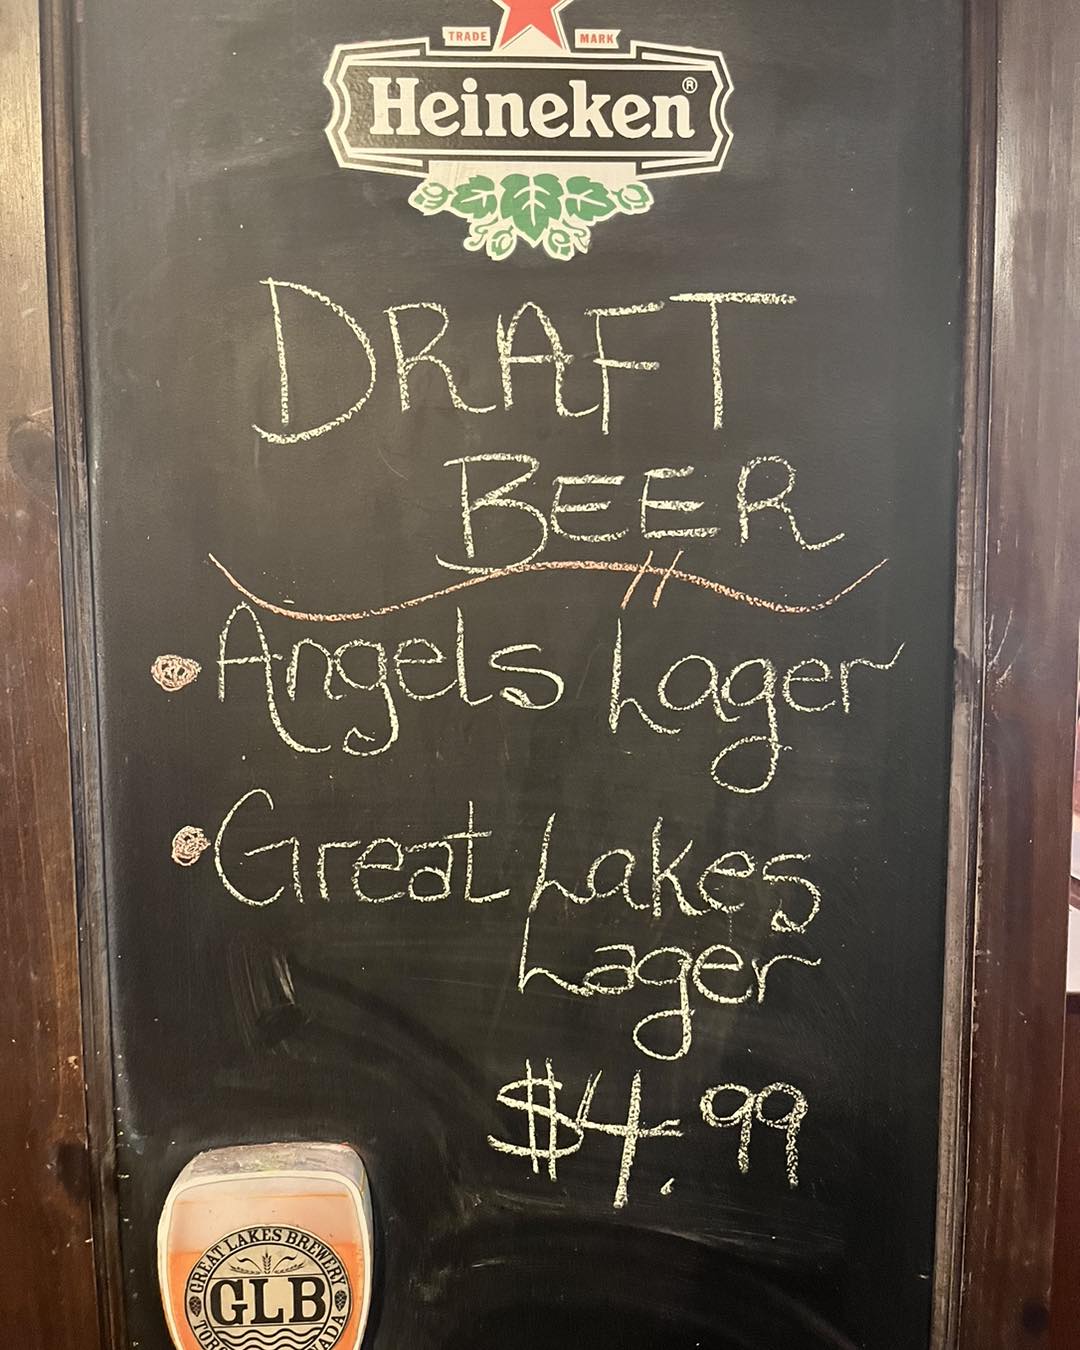 TRADE MARK
Heineken®
DRAFT
BEER
Angels Lager
Great Lakes
Lager
$4.99
GREAT LAKES BREWERY
GLB